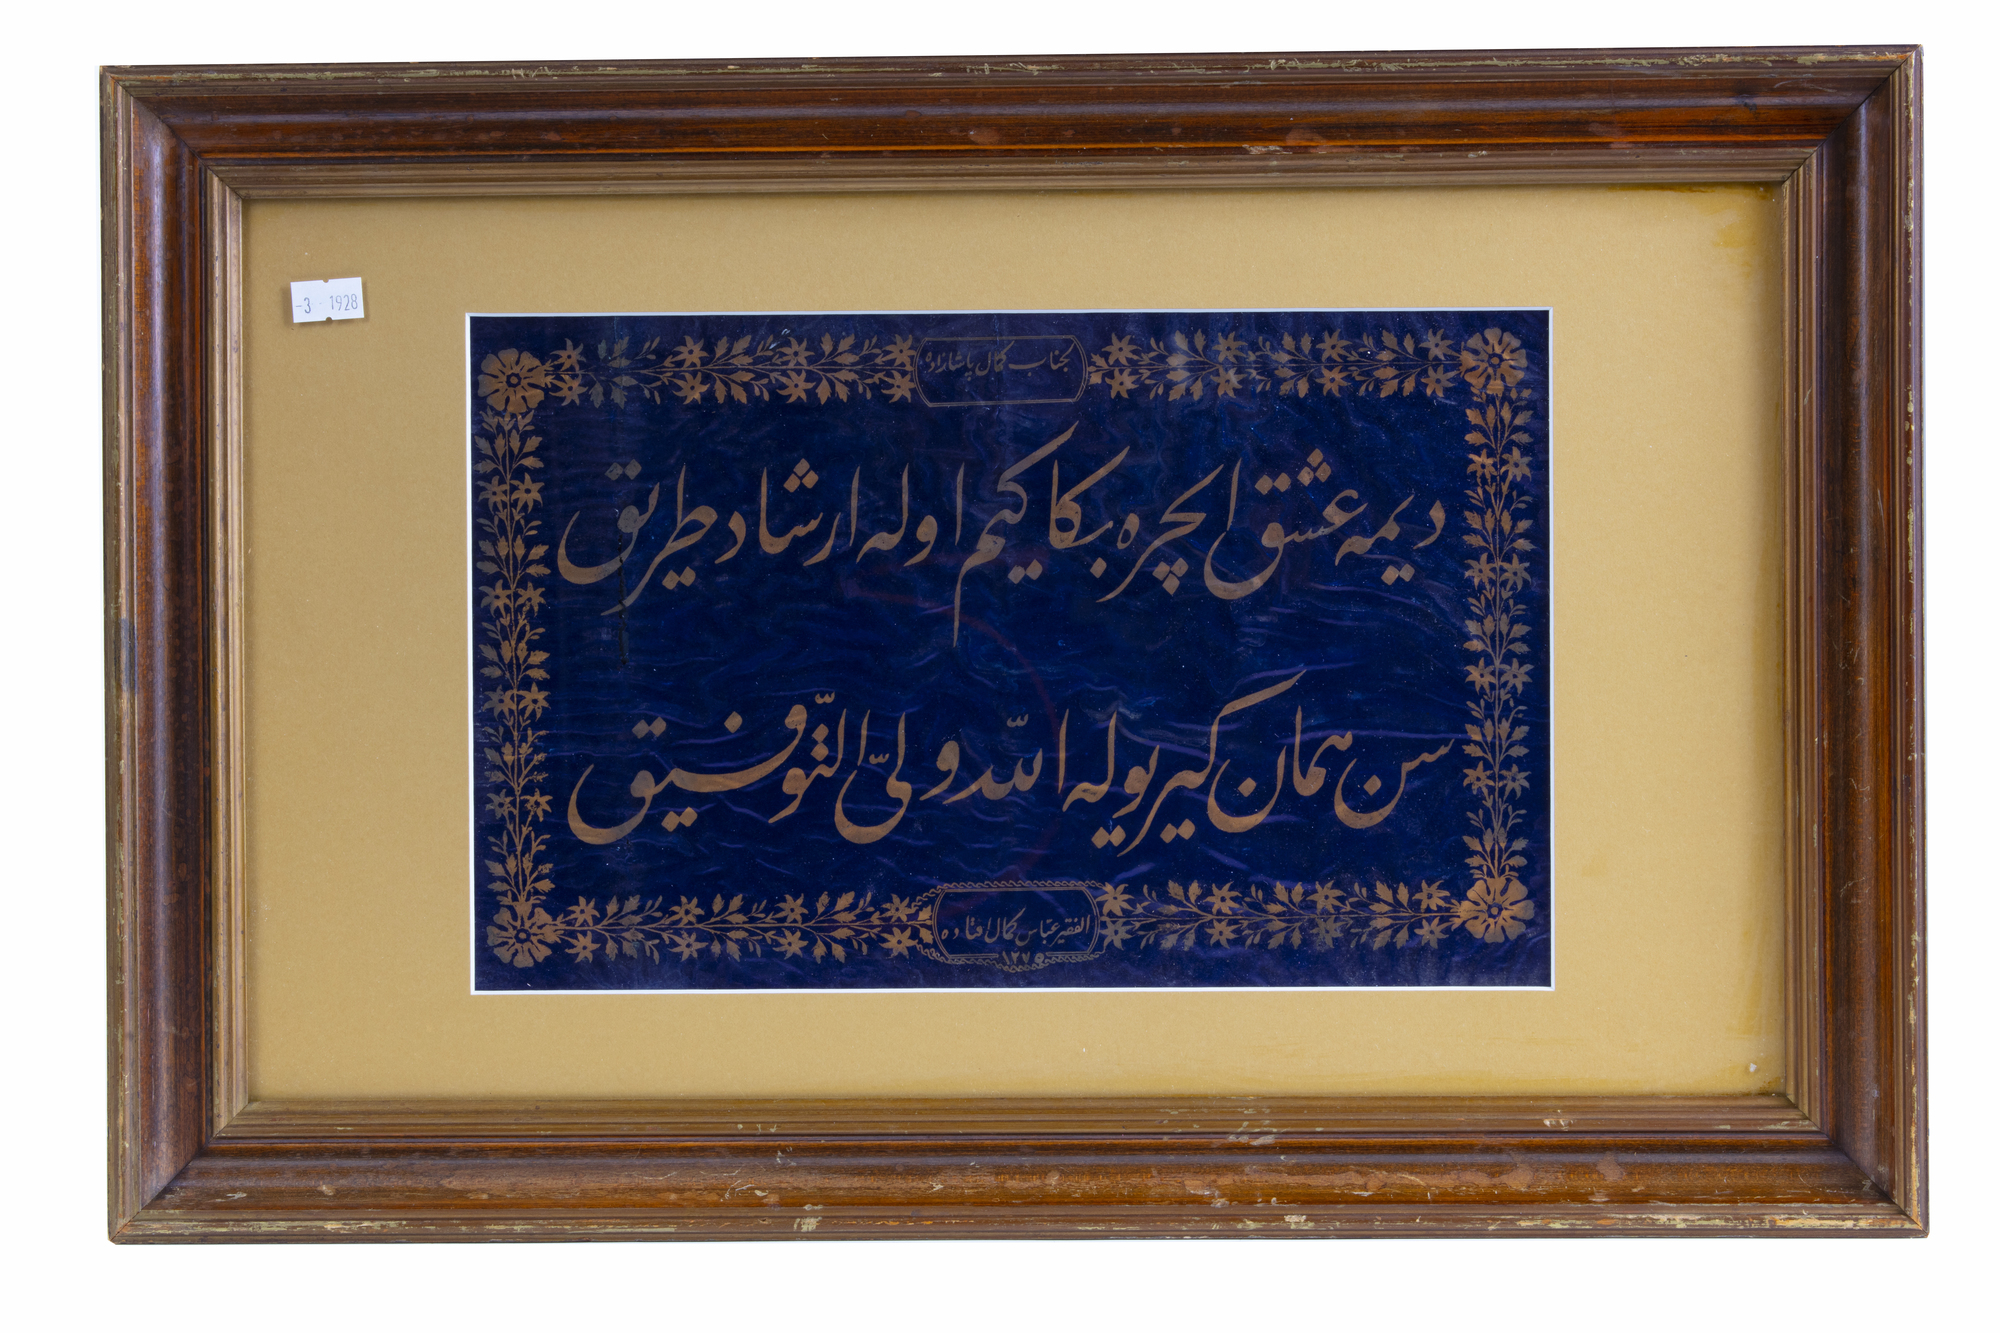 -3 1928
جناب كمال پاشازاده
ديمه عشق ايچره بكا كيم اوله ارشاد طريق
سن همان كير يوله الله ولىّ التّوفيق
الفقير عبّاس كمال افتاده
١٢٧٥